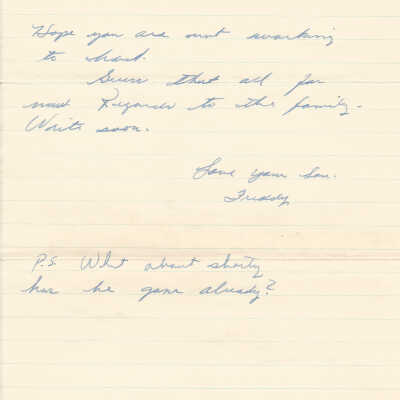 Hope you are not working
to hard.
Guess that all for
now Regards to the family.
Write soon.
Love your Son.
Freddy
P.S. What about shorty
has he gone already?